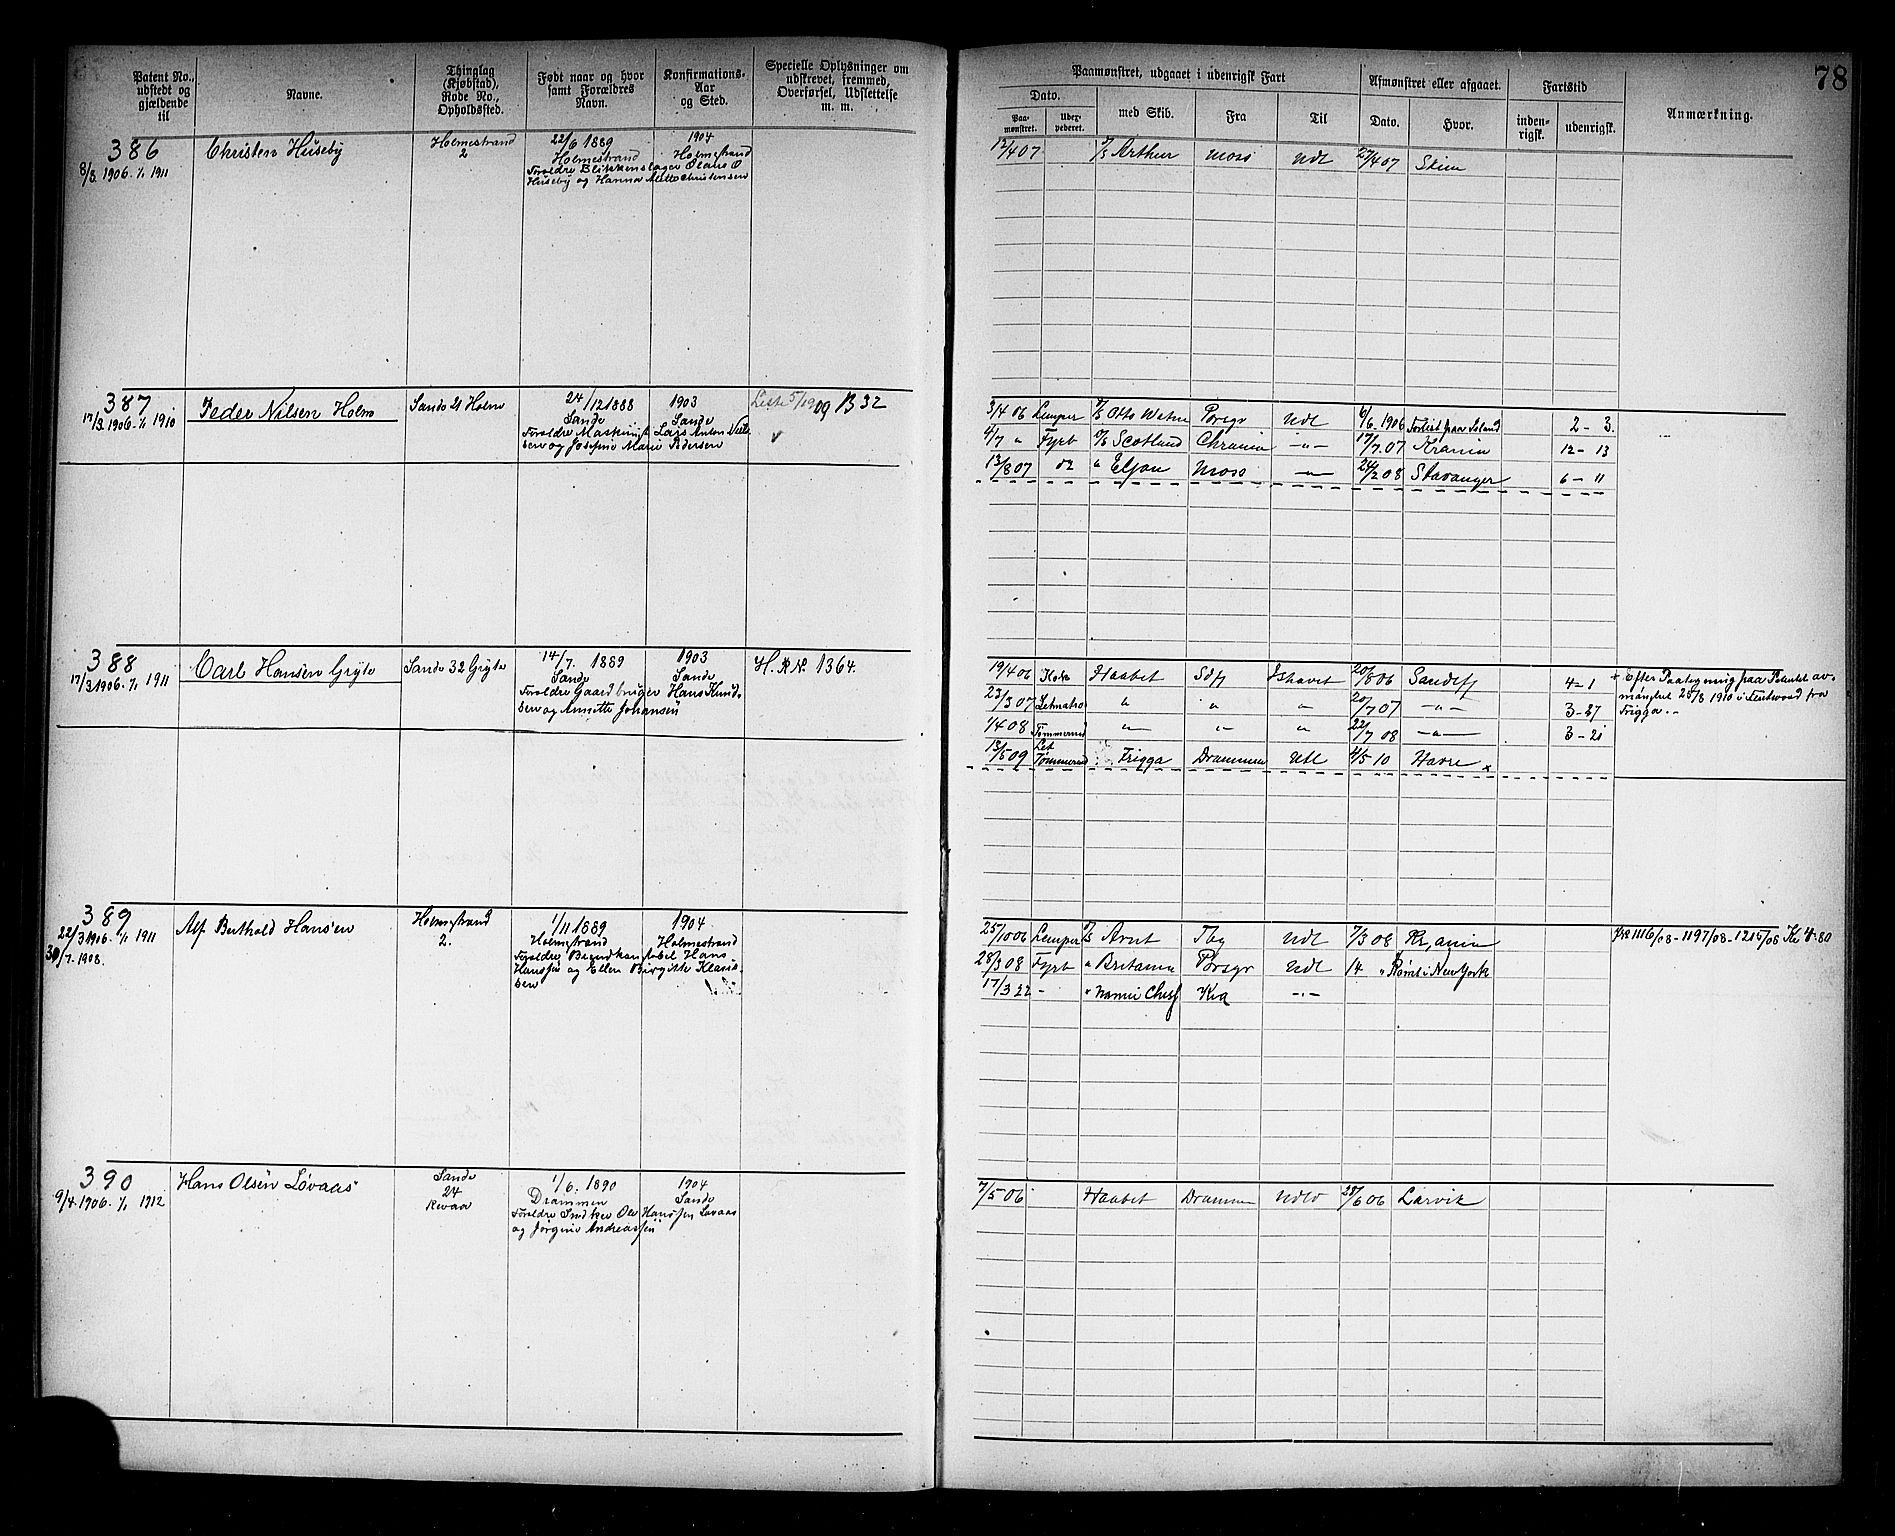 78
Patent No., udstedt og gjældende til
Navne.
Thinglag (Kjøbstad), Rode No., Opholdssted.
Født naar og hvor samt Forældres Navn.
Konfirmations-Aar og Sted.
Specielle Oplysninger om udskrevet, fremmed, Overførsel, Udslettelse m. m.
Paamønstret, udgaaet i udenrigsk Fart
Dato.
Paa-mønstret.
med Skib.
Fra
Til
Afmønstret eller afgaaet.
Dato.
Hvor.
Fartstid
inden-rigsk.
udenrigsk.
Anmærkning.
386
8/3. 1906. 1/1 1911
Christen Huseby
Holmestrand
2
22/6 1889
Holmestrand
Forældre Blikkenslager Olaus O
Huseby og Hanna Mette Christensen
1904
Holmestrand
12/4 07 Arthur Moss Udl 27/4 07 Skien
387
17/3 1906. 1/1 1910
Peder Nilsen Holm
Sande 21 Holm
24/12 1888
Sande
Forældre Maskinist Lars Anton Niel-
sen og Josefine Marie Pedersen
1903
Sande
B 32
3/4 06 Lemper Porsgr Udl 6/6 1906 2 - 3.
4/7 " Fyrb Scotland Chrania -"- 17/7 07 Krania 12 - 13
13/8 07 do " Moss -"- 24/2 08 Stavanger 6 - 11
388
17/3 1906. 1/1 1911
Carl Hansen Gryte
Sande 32 Gryte
14/7. 1889
Sande
Forældre Gaardbruger Hans Knud-
sen og Annette Johansen
1903
Sande
H. R. N. 1364.
19/4 06 Kok Haabet Sdfj Ishavet 20/8 06 Sandefj 4 - 1
23/3 07 Letmatros " " " 20/7 07 -"- 3 - 27
1/4 08 Tømmermd " " " 22/7 08 -"- 3 - 21
13/5 09 Let Tømmermd Frigga Drammen Udl 4/5 10 Havre x
x Efter Paategning paa Patentet av-
mønstret 25/8 1910 i Fleetwood fra
Frigga. -
389
22/3 1906. 1/1 1911
30/7. 1908.
Alf Berthold Hansen
Holmestrand
2.
1/11 1889
Holmestrand
Forældre Brandkonstabel Hans
Hanssen og Ellen Birgitte Klaus-
sen
1904
Holmestrand
25/10 06 Lemper Arnt Tbg Udl 7/3 08 Kr,ania
28/3 08 Fyrb " Britania Porsgr Udl 14 " Rømt i New York
17/3 22 - " Kra -"-
1116/08 - 1197/08 - 1215/08 Kr 4.80
390
9/4. 1906. 1/1 1912
Hans Olsen Løvaas
Sande
24
Revaa
1/6. 1890
Drammen
Forældre Snedker Ole Hanssen Løvaas
og Jørgine Andreassen
1904
Sande
7/5 06 Haabet Drammen Udld 28/6 06 Larvik